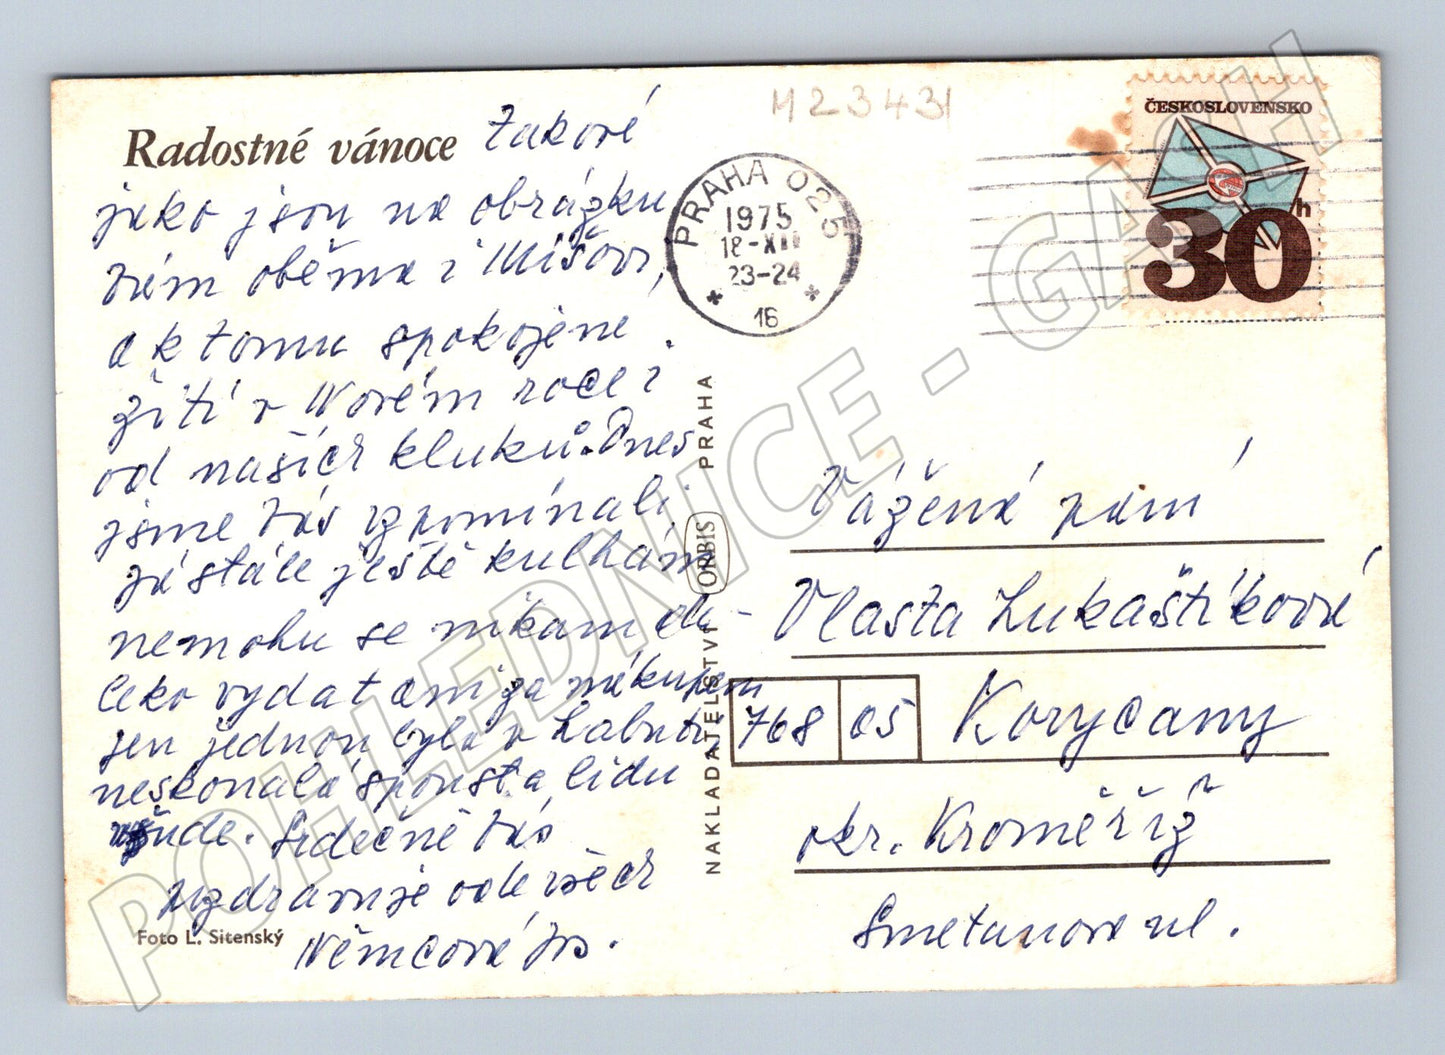 M23431
ČESKOSLOVENSKO
30 h
PRAHA 025
1975
18-XII
23-24
* 16 *
Radostné vánoce takové
jako jsou na obrázku
Vám oběma i Míšovi,
a k tomu spokojené
žití v Novém roce i
od našich kluků. Dnes
jsme Vás vzpomínali
já stále ještě kulhám
nemohu se nikam da-
leko vydat ani za nákupem
jen jednou byla v Labuti
neskonalá spousta lidu
všude. Srdečně Vás
pozdravuje ode všech
Němcová
Foto L. Sitenský
NAKLADATELSTVÍ ORBIS PRAHA
Vážená paní
Vlasta Lukaštíková
768 05 Korycany
okr. Kroměříž
Smetanova ul.
POHLEDNICE - GASH